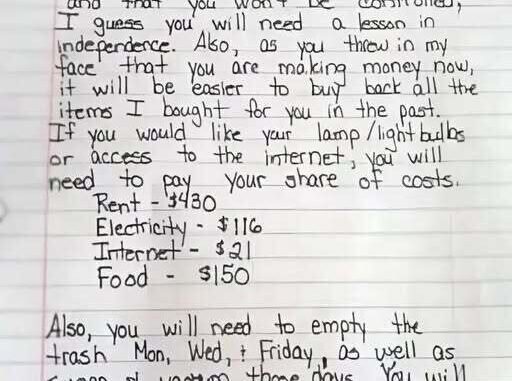 and that you won't be controlled,
I guess you will need a lesson in
independence. Also, as you threw in my
face that you are making money now,
it will be easier to buy back all the
items I bought for you in the past.
If you would like your lamp/lightbulbs
or access to the internet, you will
need to pay your share of costs.
Rent - $430
Electricity - $116
Internet - $21
Food - $150
Also, you will need to empty the
trash Mon, Wed, + Friday, as well as
those days. You will